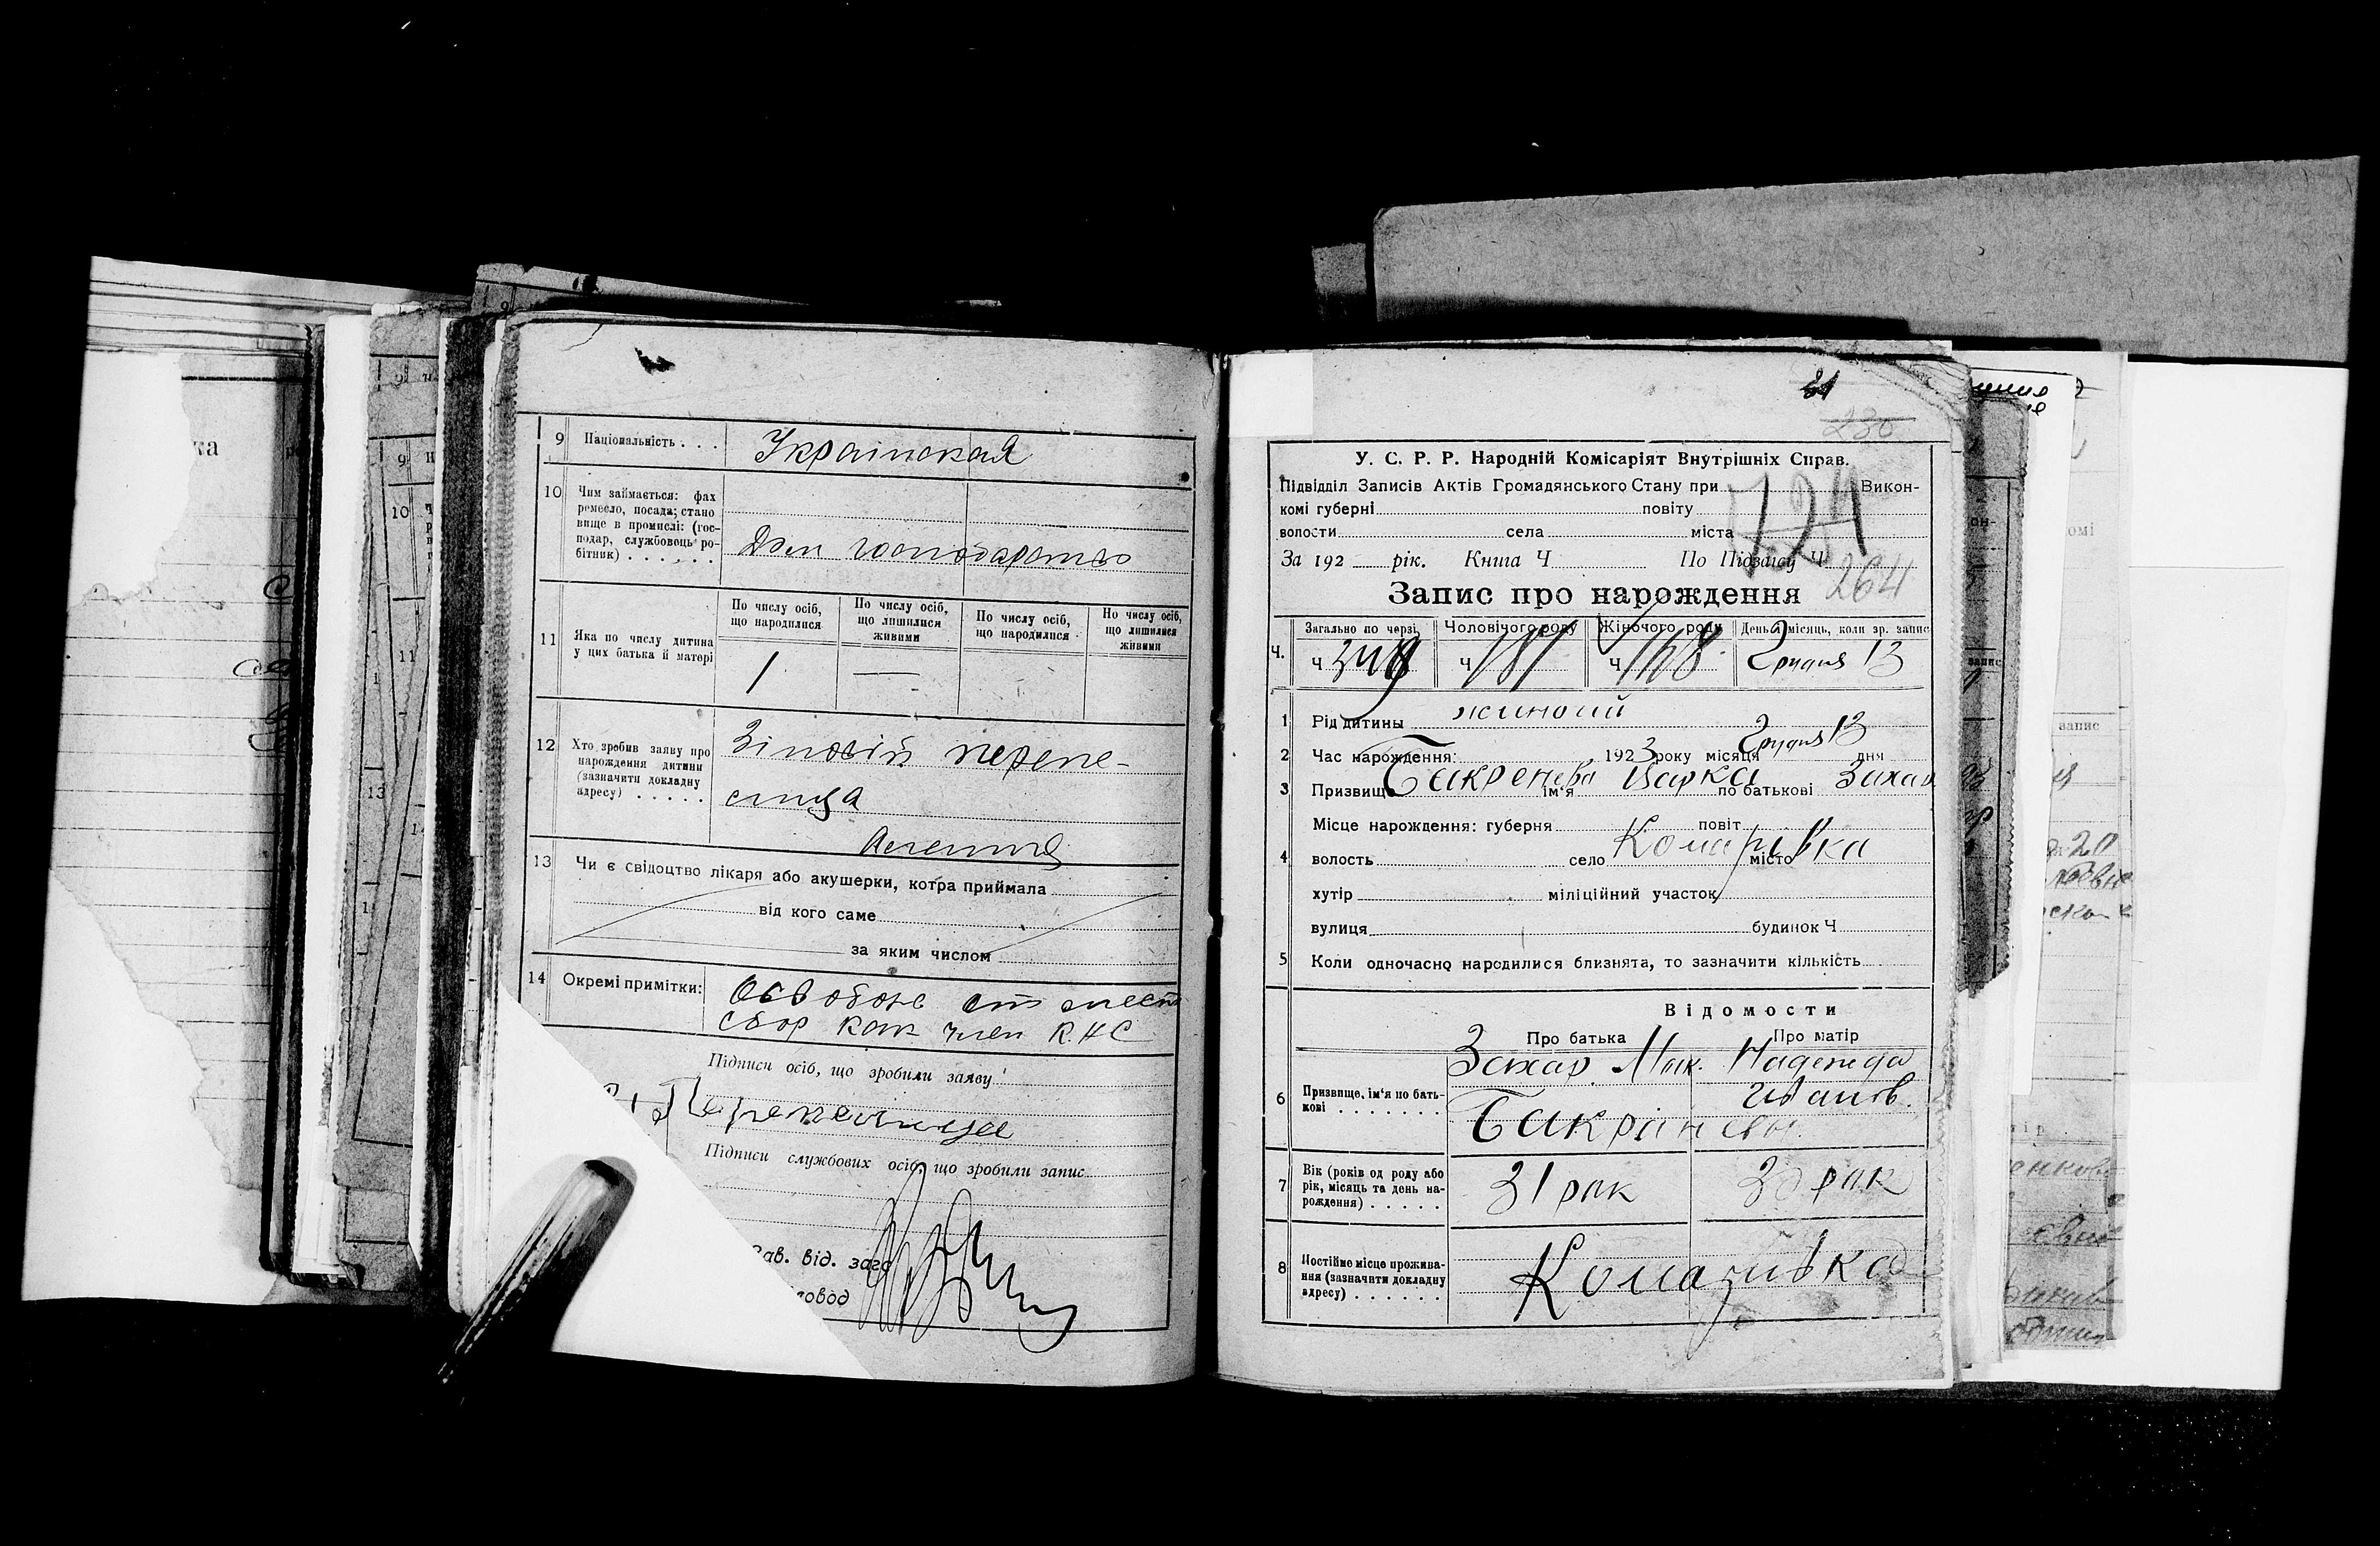 9 Національність . . . Українская
10 Чим займається: фах
ремесло, посада; стано
вище в промислі: (гос-
подар, службовець ро-
бітник) . . . . . . Дом господарство
11 Яка по числу дитина
у цих батька й матері
По числу осіб,
що народилися
По числу осіб,
що лишилися
живими
По числу осіб,
що народилися
По числу осіб,
що лишилися
живими
1 —
12 Хто зробив заяву про
нарождення дитини
(зазначити докладну
адресу) . . . . .
Зіновій перепе-
лица
13 Чи є свідоцтво лікаря або акушерки, котра приймала
від кого саме
за яким числом
14 Окремі примітки:
Освобожд от мест
сбор как член К.Н.С
Підписи осіб, що зробили заяву
Перепелица
Підписи службових осіб, що зробили запис
Зав. від. заго
ловод
81
230
У. С. Р. Р. Народній Комісаріят Внутрішніх Справ.
Підвідділ Записів Актів Громадянського Стану при Викон-
комі губерні повіту
волости села міста
724
За 192 рік. Книга Ч По Підзагсу Ч
264
Запис про нарождення
Ч.
Загально по черзі
Чоловічого роду
Жіночого роду
День і місяць, коли зр. запис
ч 349 ч 181 ч 168 Грудня 13
1 Рід дитини жиночий
2 Час нарождення: 1923 року місяця Грудня 13 дня
3 Призвище ім'я по батькові Захар
4 Місце нарождення: губерня повіт
волость село Комарівка місто
хутір міліційний участок
вулиця будинок Ч
5 Коли одночасно народилися близнята, то зазначити кількість
Відомости
Про батька Про матір
6 Призвище, ім'я по бать-
кові . . . . . . .
Захар Мак. Надежда
Иванов.
7 Вік (років од роду або
рік, місяць та день на-
рождення) . . . . .
31 рок 30 рок
8 Постійне місце прожива-
ння (зазначити докладну
адресу) . . . . . . .
Комарівка